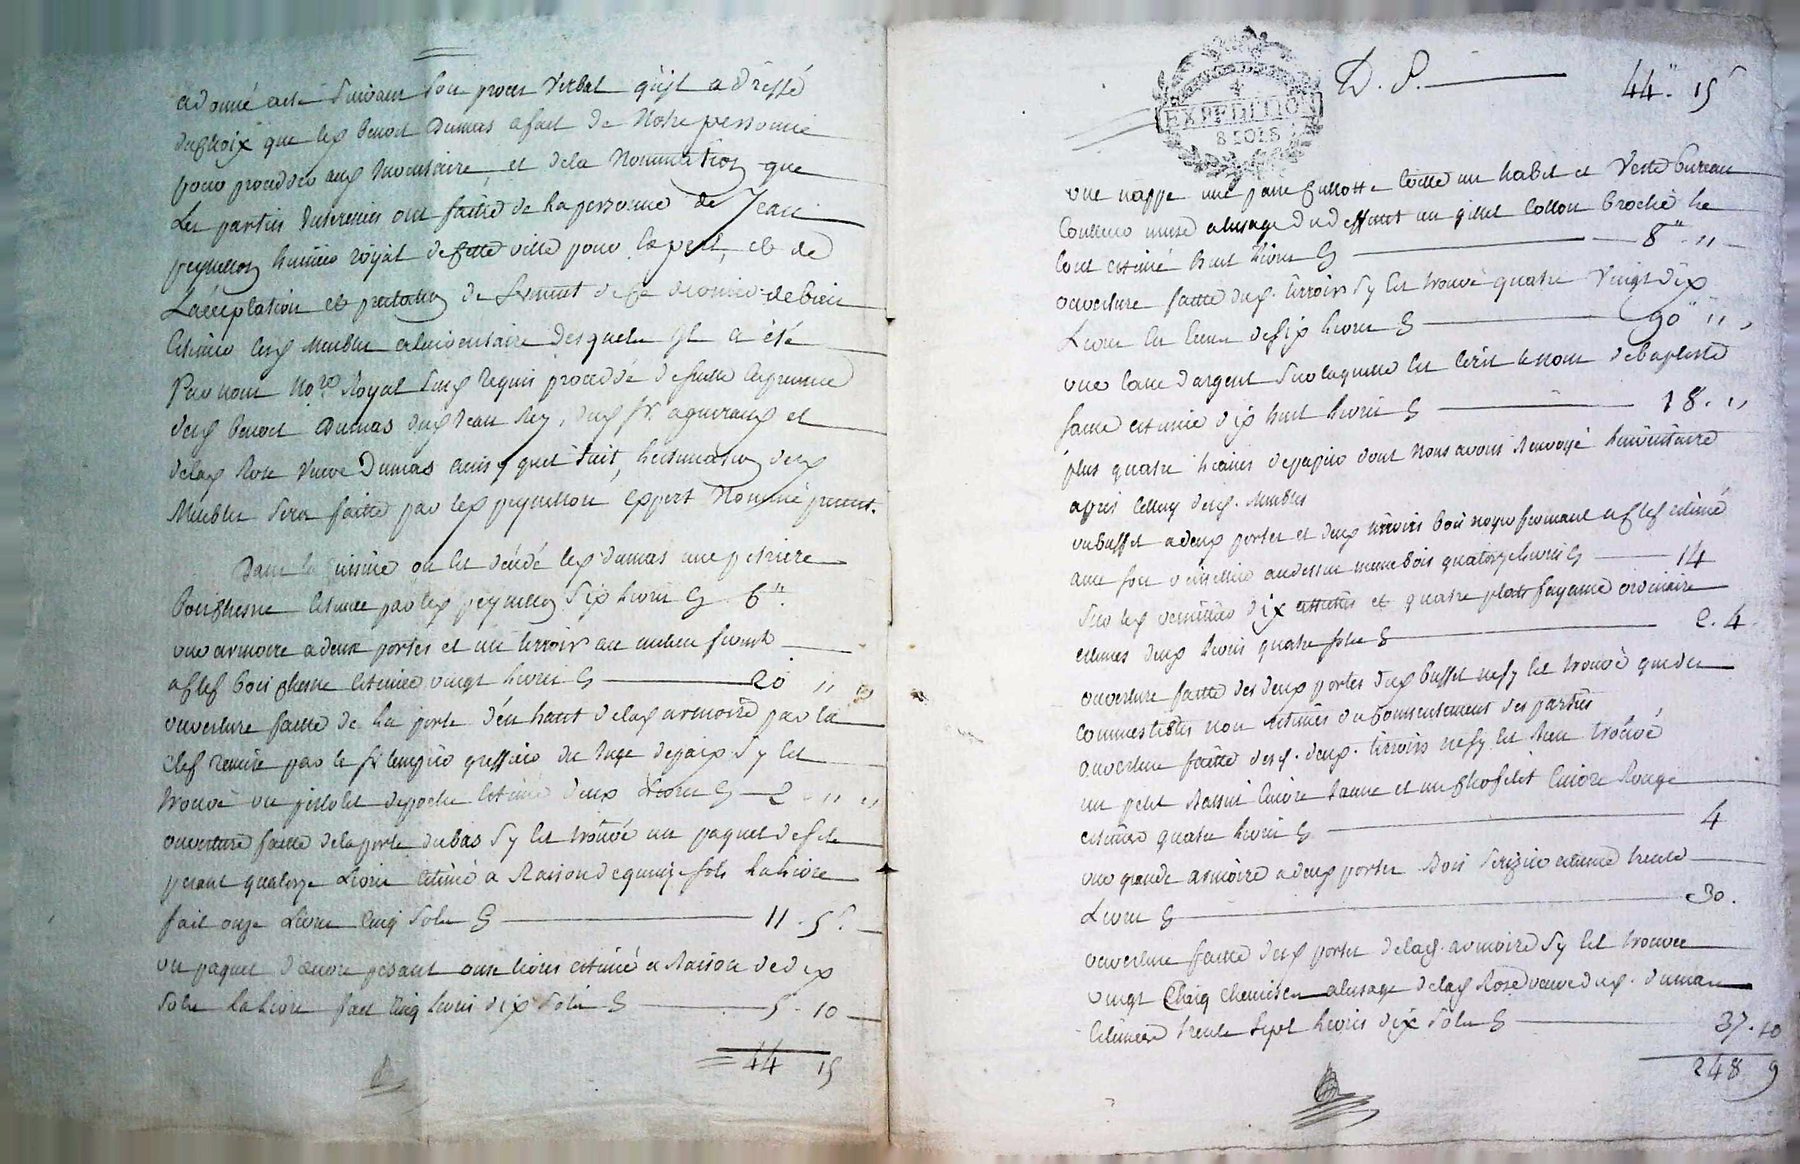 a donné acte suivant son procès verbal qu'il a dressé
du choix que led benoit Dumas a fait de Notre personne
pour proceder aud Inventaire et de la Nomination que
Les parties Interessées ont faitte de la personne de Jean
peyrusson huissier royal de cette ville pour Expert, et de
L'acceptation et prestation de serment de ce dernier de bien
Estimer lesd Meubles a Inventaire desquels Il a été
Par nous No.re Royal Susd requis procedé desuitte En presence
dud benoit Dumas dud Jean Rey, dud Sr. et
de lad Rose Veuve Dumas ainsy que suit, l'estimation desd
Meubles sera faitte par led peyrusson Expert Nommé present.
Dans la Cuisine ou Est décédé led Dumas une petriere
bois chesne Estimée par led peyrusson Six Livres Cy 6"
une armoire a deux portes et un tirroir au milieu fermt
a clef bois chesne Estimée vingt Livres Cy 20 " "
ouverture faitte de la porte d'en haut de lad armoire par la
clef remise par le Sr greffier du Juge de paix S'y Est
trouvé un pistolet de poche Estimé deux Livres Cy 2 " "
ouverture faitte de la porte du bas S'y Est trouvé un paquet de
pesant quatorze Livres Estimé a Raison de quinze Sols La Livre
fait onze Livres Cinq Sols Cy 11 . 5s.
un paquet d'œuvre pesant onze livres Estimé a Raison de dix
Sols La Livre fait Cinq Livres dix Sols Cy 5 . 10
44 15
D. P. 44" 15s
4
EXPEDITION
8 SOLS
une nappe une paire Cullotte toille un habit et Veste bureau
Couleur a lusage du deffunt un gillet Cotton broché le
tout estimé huit Livres Cy 8" "
ouverture faitte dud. tirroir S'y Est trouvé quatre Vingt dix
Livres En de six Livres Cy 90 " "
une d'argent Sur laquelle Est Ecrit le nom de baptiste
estimée dix huit Livres Cy 18 . "
plus quatre de papier dont Nous avons Renvoyé L'inventaire
après Celluy desd. Meubles
un buffet a deux portes et deux tirroirs bois noyer fermant a clef estimé
avec son veissellier au dessus meme bois quatorze Livres Cy 14
Sur led veissellier dix assiettes et quatre plats fayance ordinaire
estimés deux Livres quatre Sols Cy 2 . 4.
ouverture faitte des deux portes dud buffet ne s'y Est trouvé que des
commestibles non estimés du Consentement des parties
ouverture faitte desd. deux tirroirs ne s'y Est Rien trouvé
un petit Bassin Cuivre Jaune et un Cuivre Rouge
estimés quatre Livres Cy 4
une grande armoire a deux portes Bois Serizier estimée trente
Livres Cy 30.
ouverture faitte desd portes de lad. armoire S'y Est trouvé
vingt Cinq Chemises a lusage de lad Rose veuve dud. Dumas
Estimées trente Sept Livres dix Sols Cy 37 . 10
248 9